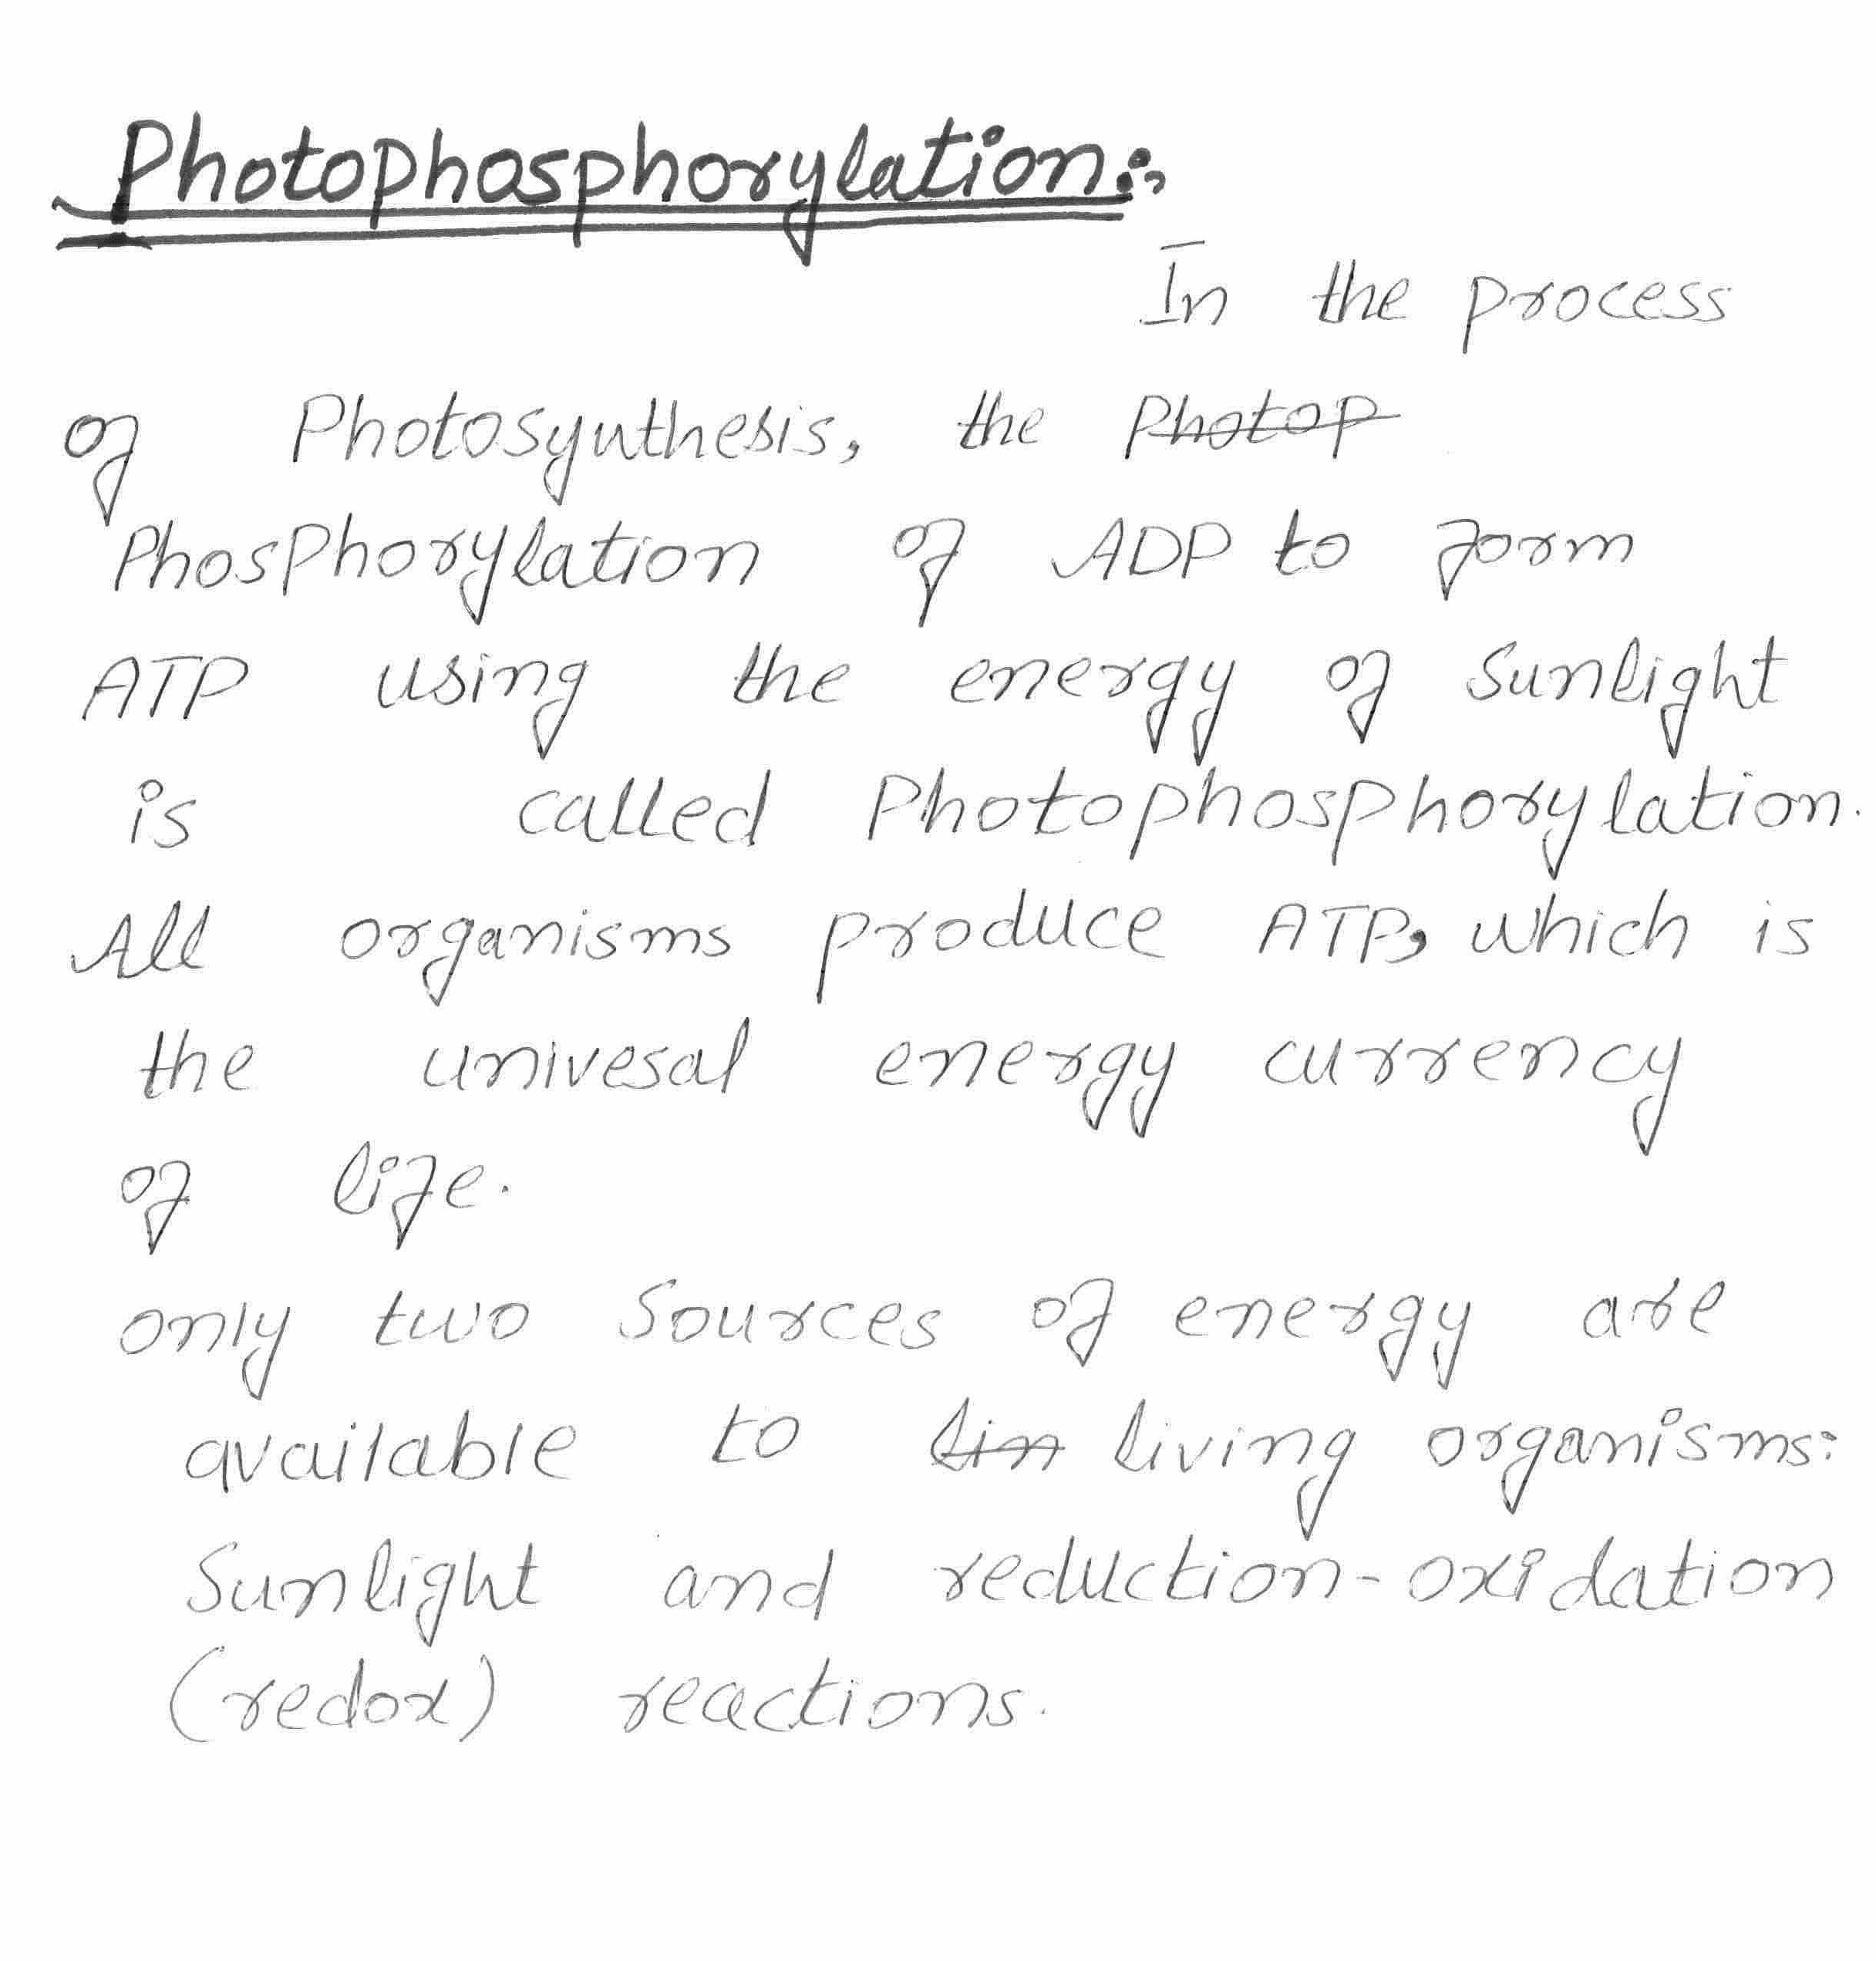 Photophosphorylation:-
In the process
of Photosynthesis, the Photop
Phosphorylation of ADP to form
ATP using the energy of Sunlight
is called Photophosphorylation.
All organisms produce ATP, which is
the univesal energy currency
of life.
only two Sources of energy are
available to lin living organisms:
Sunlight and reduction-oxidation
(redox) reactions.